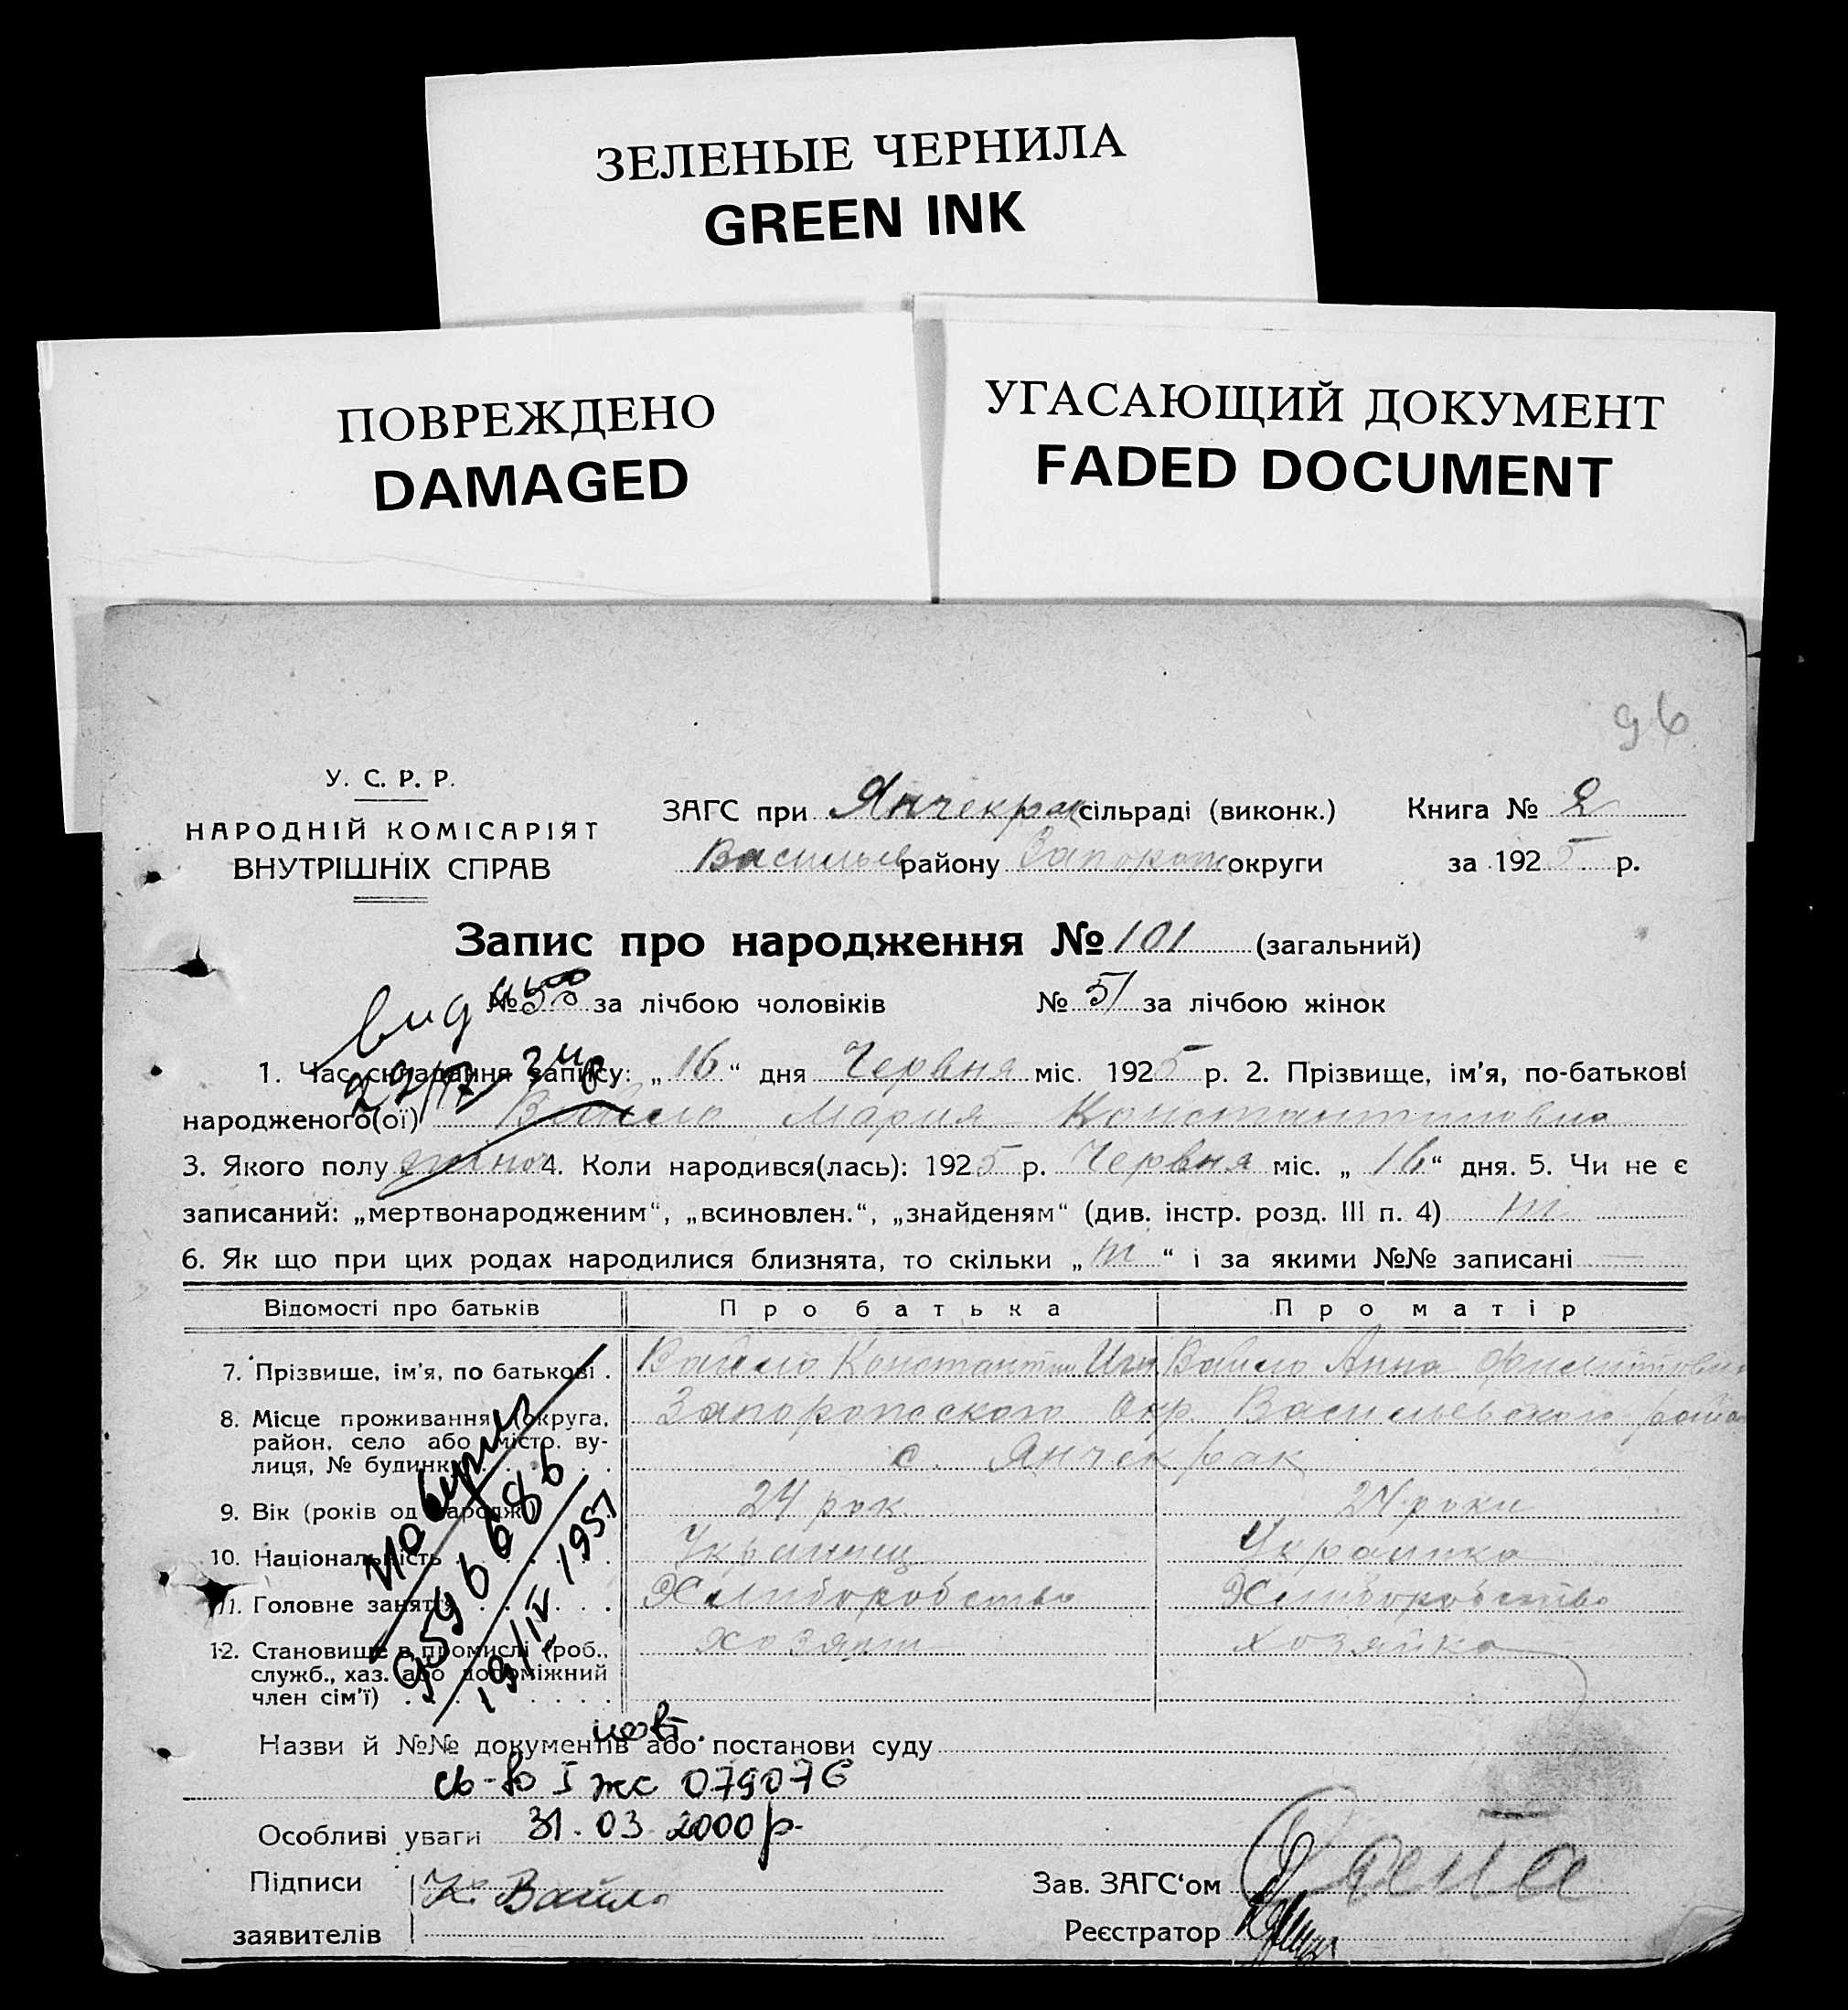 ЗЕЛЕНЫЕ ЧЕРНИЛА
GREEN INK
ПОВРЕЖДЕНО
DAMAGED
УГАСАЮЩИЙ ДОКУМЕНТ
FADED DOCUMENT
96
У. С. Р. Р.
НАРОДНІЙ КОМІСАРІЯТ
ВНУТРІШНІХ СПРАВ
ЗАГС при Янчекрак сільраді (виконк.) Книга № 2
Васильев району Запорож округи за 1925 р.
Запис про народження № 101 (загальний)
№ 50 за лічбою чоловіків № 51 за лічбою жінок
1. Час складання запису: „16“ дня Червня міс. 1925 р. 2. Прізвище, ім'я, по-батькові
народженого(ої) Вайло Мария Константиновна
3. Якого полу жіноч 4. Коли народився(лась): 1925 р. Червня міс. „16“ дня. 5. Чи не є
записаний: „мертвонародженим“, „всиновлен.“, „знайденям“ (див. інстр. розд. III п. 4) ні
6. Як що при цих родах народилися близнята, то скільки „ні“ і за якими №№ записані —
Відомості про батьків Про батька Про матір
7. Прізвище, ім'я, по батькові . Вайло Константин Вайло Анна Филиповна
8. Місце проживання (округа, район, село або місто. вулиця, № будинку) Запорожского Окр Васильевского район
с. Янчекрак
9. Вік (років од народж.) 24 рок. 24 роки
10. Національність Украинец Украинка
11. Головне заняття Хлиборобство Хлиборобство
12. Становище в промислі (роб., служб., хаз. або допоміжний член сім'ї) хозяин хозяйка
повторне
9596686
19/IV 1951
Назви й №№ документів або постанови суду
повт.
св-во I жс 079076
Особливі уваги 31.03.2000р.
Підписи К. Вайло Зав. ЗАГС'ом
заявителів Реєстратор